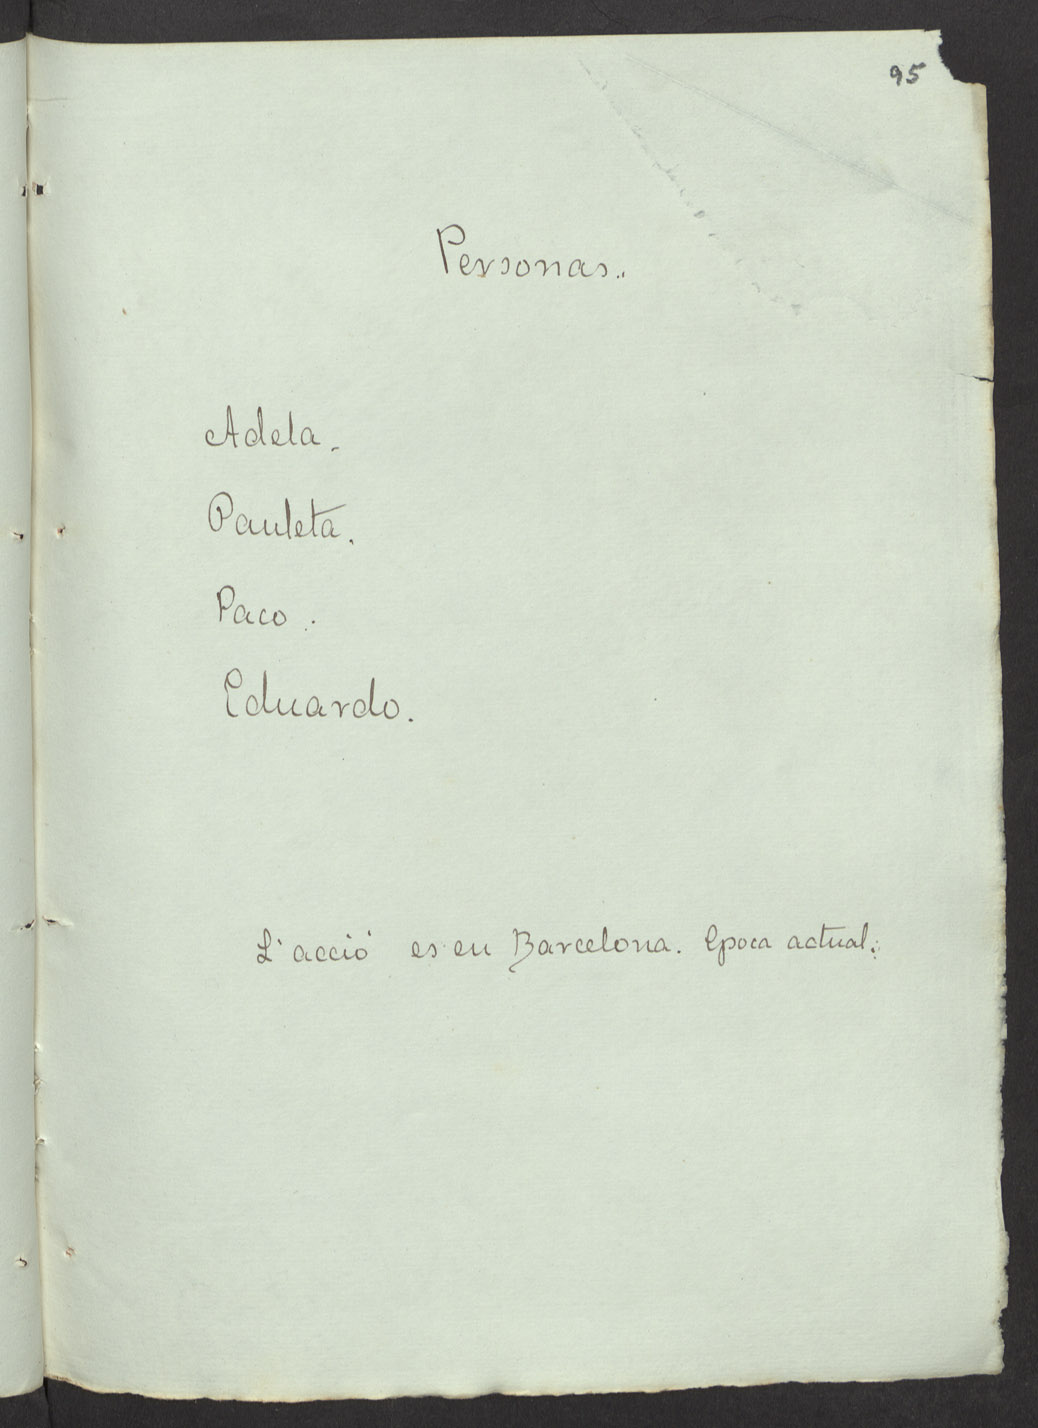 95
Personas..
Adela.
Pauleta.
Paco.
Eduardo.
L'acció es en Barcelona. Epoca actual.